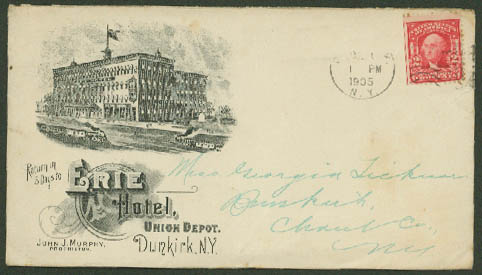 1 PM
1905
N.Y.
Return in
5 Days to
ERIE
Hotel,
UNION DEPOT.
Dunkirk, N.Y.
JOHN J. MURPHY,
PROPRIETOR.
Miss Georgia Ticknor
Dunkirk,
Chaut Co,
NY